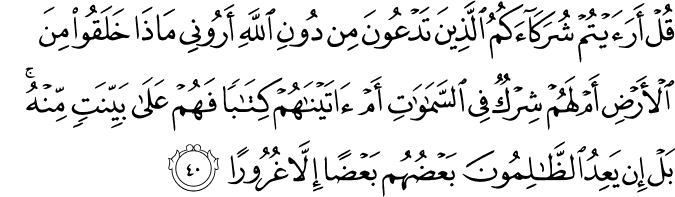 قُلْ أَرَءَيْتُمْ شُرَكَآءَكُمُ ٱلَّذِينَ تَدْعُونَ مِن دُونِ ٱللَّهِ أَرُونِي مَاذَا خَلَقُوا۟ مِنَ
ٱلْأَرْضِ أَمْ لَهُمْ شِرْكٌ فِي ٱلسَّمَـٰوَٰتِ أَمْ ءَاتَيْنَـٰهُمْ كِتَـٰبًا فَهُمْ عَلَىٰ بَيِّنَتٍ مِّنْهُ ۚ
بَلْ إِن يَعِدُ ٱلظَّـٰلِمُونَ بَعْضُهُم بَعْضًا إِلَّا غُرُورًا ٤٠